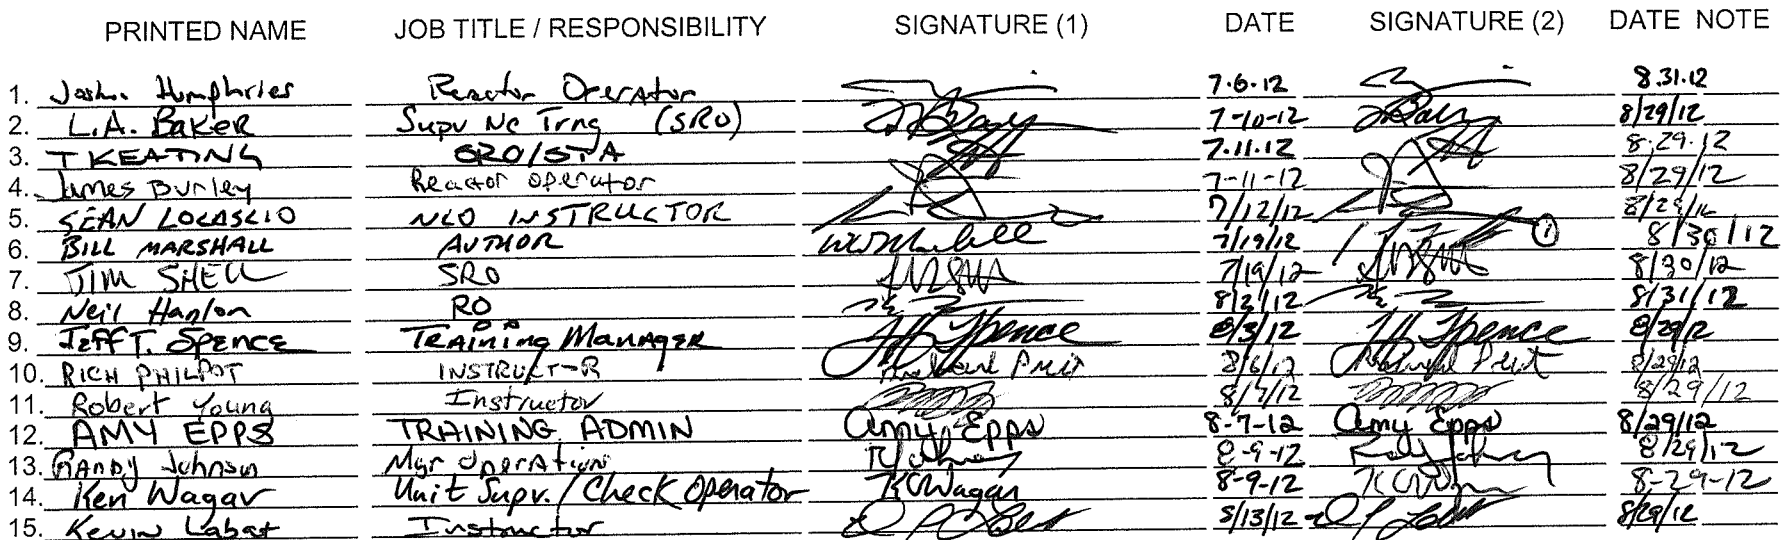 PRINTED NAME JOB TITLE / RESPONSIBILITY SIGNATURE (1) DATE SIGNATURE (2) DATE NOTE
1. Josh. Humphries Reactor Operator 7.6.12 8.31.12
2. L.A. BAKER Supv Nc Trng (SRO) 7-10-12 8/29/12
3. T KEATING SRO/STA 7.11.12 8.29.12
4. James Burley Reactor operator 7-11-12 8/29/12
5. SEAN LOCASCIO NLO INSTRUCTOR 7/12/12
6. BILL MARSHALL AUTHOR 7/19/12 (1) 8/30/12
7. JIM SHELL SRO 7/19/12 8/30/12
8. Neil Hanlon RO 8/2/12 8/31/12
9. JEFF T. SPENCE TRAINING MANAGER Spence 8/3/12 Spence 8/29/12
10. RICH PHILPOT INSTRUCT-R 8/6/12 8/29/12
11. Robert Young Instructor 8/7/12 8/29/12
12. AMY EPPS TRAINING ADMIN Amy Epps 8-7-12 Amy Epps 8/29/12
13. RANDY Johnson Mgr Operations 8-9-12 8/29/12
14. Ken Wagar Unit Supv. / Check Operator K Wagar 8-9-12 8-29-12
15. Kevin Labat Instructor 8/13/12 8/29/12